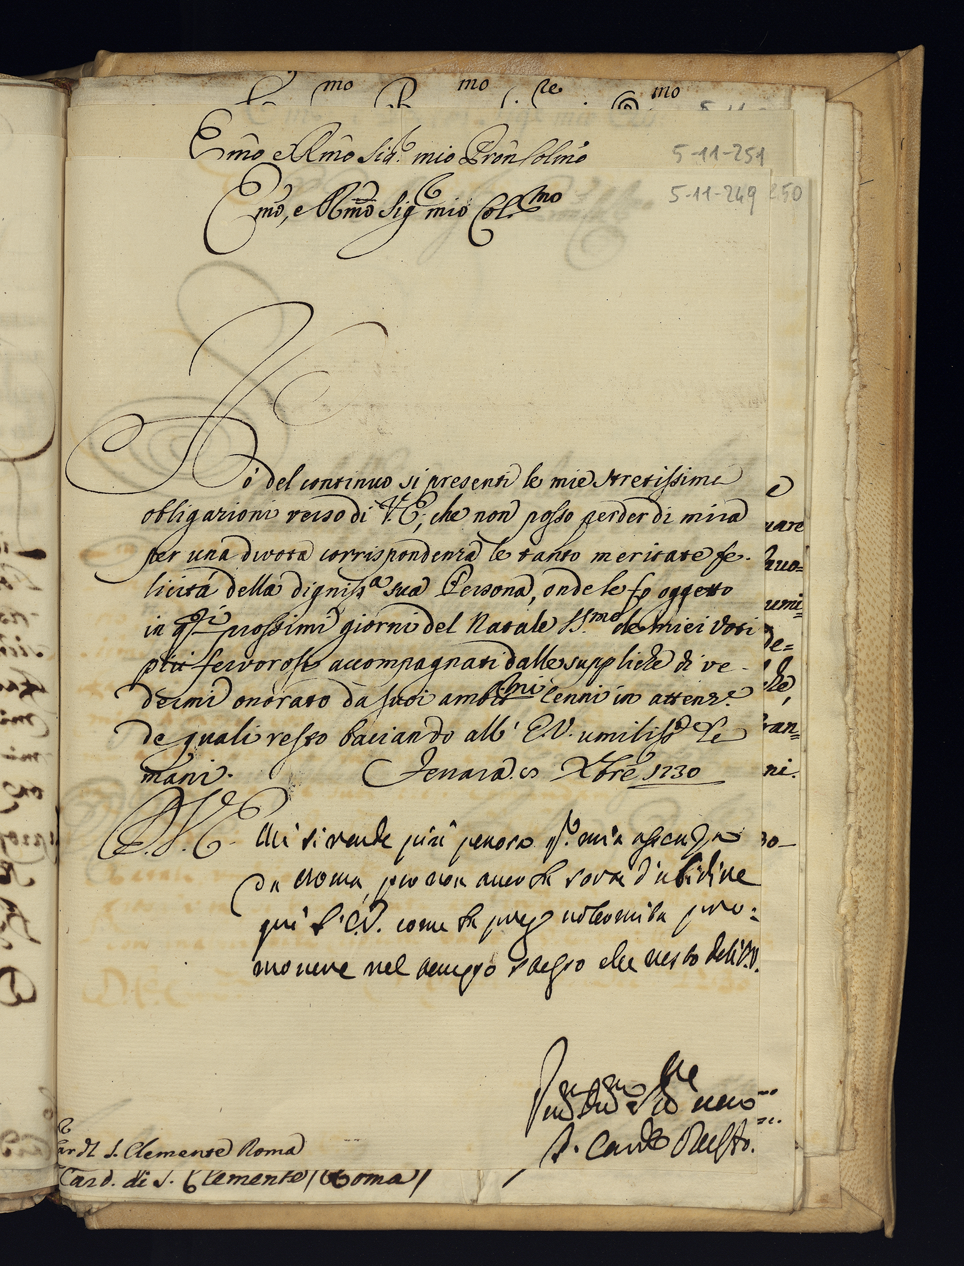 Em̃o e Rm̃o Sig.r mio Pron̄ Colmo
5-11-251
Em̃o, e Rm̃o Sig.r mio Col.mo
5-11-249
250
ò del continuo sì presenti le mie strettissime
obligazioni verso di V.E., che non posso perder di mira
per una divota corrispondenza le tanto meritate fe-
licità della digniss.a sua Persona, onde le fò oggetto
in q.sti prossimi giorni del Natale SS.mo de miei voti
più fervorosi accompagnati dalle suppliche di ve-
dermi onorato da suoi amb.mi cenni in attenz.e
de quali resto baciando all' E.V. umiliss.e le
mani. Ferrara Xbre 1730
D.V.E. Mi si rende più penosa mia assenza
da Roma, per non aver la sorte d'ubidire
qui l'E.V. come la prego volermila pro-
movere nel tempo stesso che resto dell'E.V.
S. Card. Ruffo.
Card. S. Clemente Roma
Card. di S. Clemente / Roma /